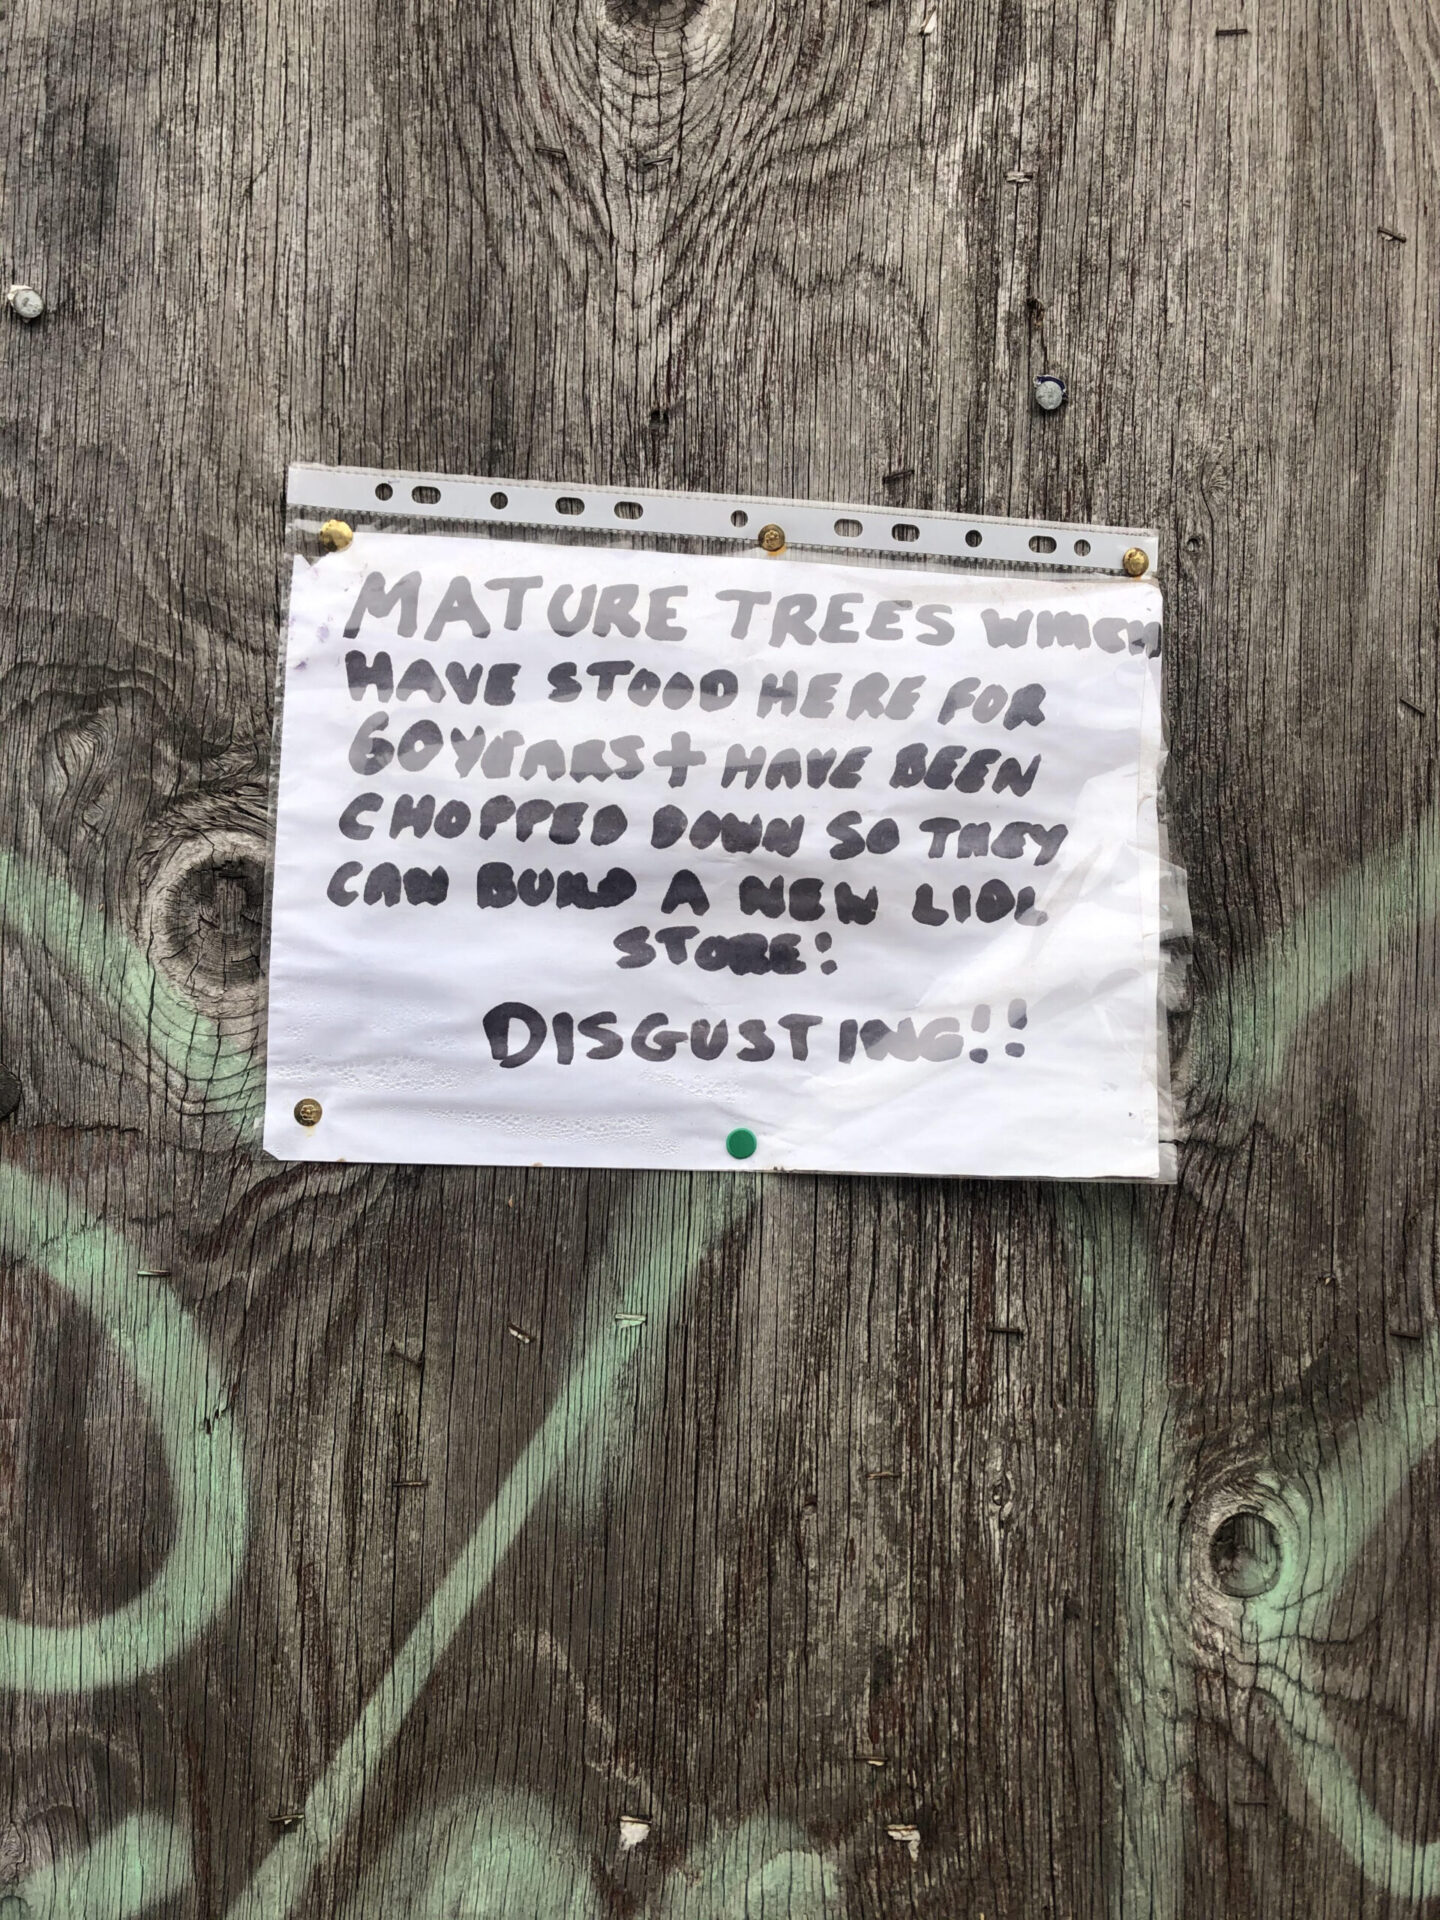 MATURE TREES WHICH
HAVE STOOD HERE FOR
60 YEARS + HAVE BEEN
CHOPPED DOWN SO THEY
CAN BUILD A NEW LIDL
STORE!
DISGUSTING!!